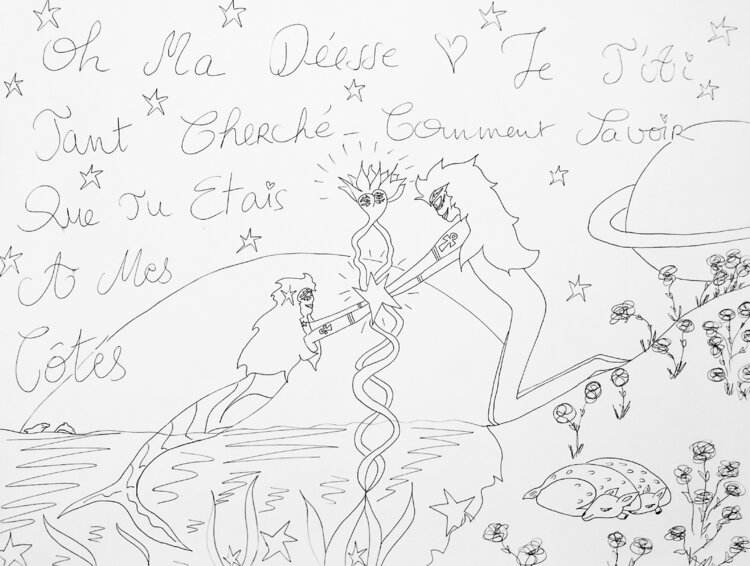 Oh Ma Déesse ♡ Je T'Ai
Tant Cherché - Comment Savoir
Que Tu Etais
A Mes
Côtés